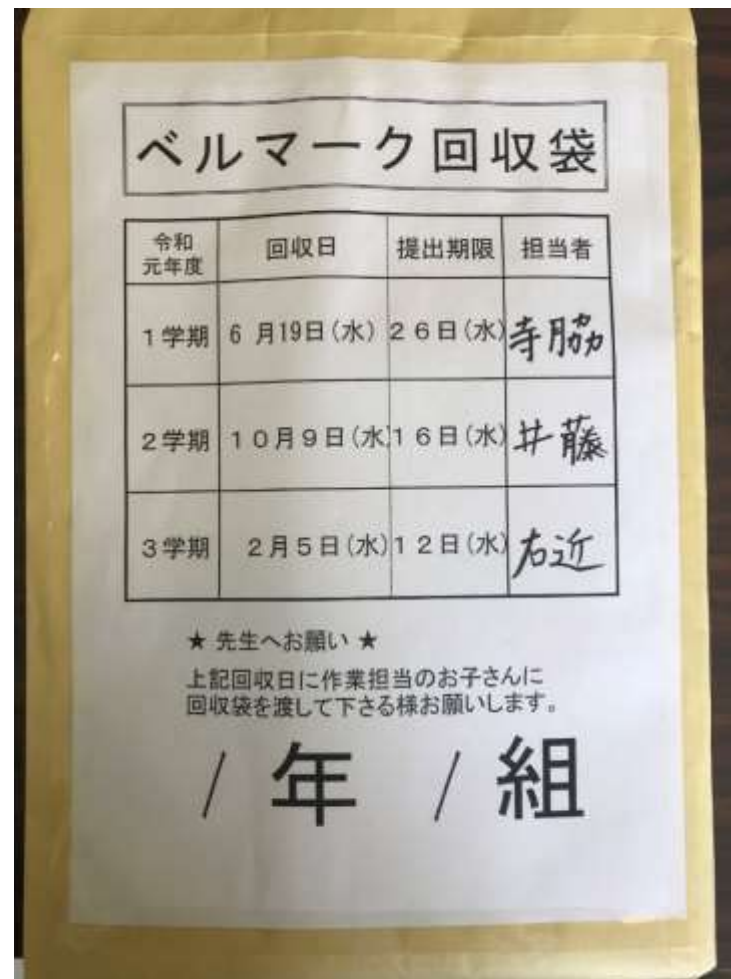 ベルマーク回収袋
令和
元年度 回収日 提出期限 担当者
1学期 6月19日(水) 26日(水) 寺脇
2学期 10月9日(水) 16日(水) 井藤
3学期 2月5日(水) 12日(水) 右近
★ 先生へお願い ★
上記回収日に作業担当のお子さんに
回収袋を渡して下さる様お願いします。
/ 年 / 組